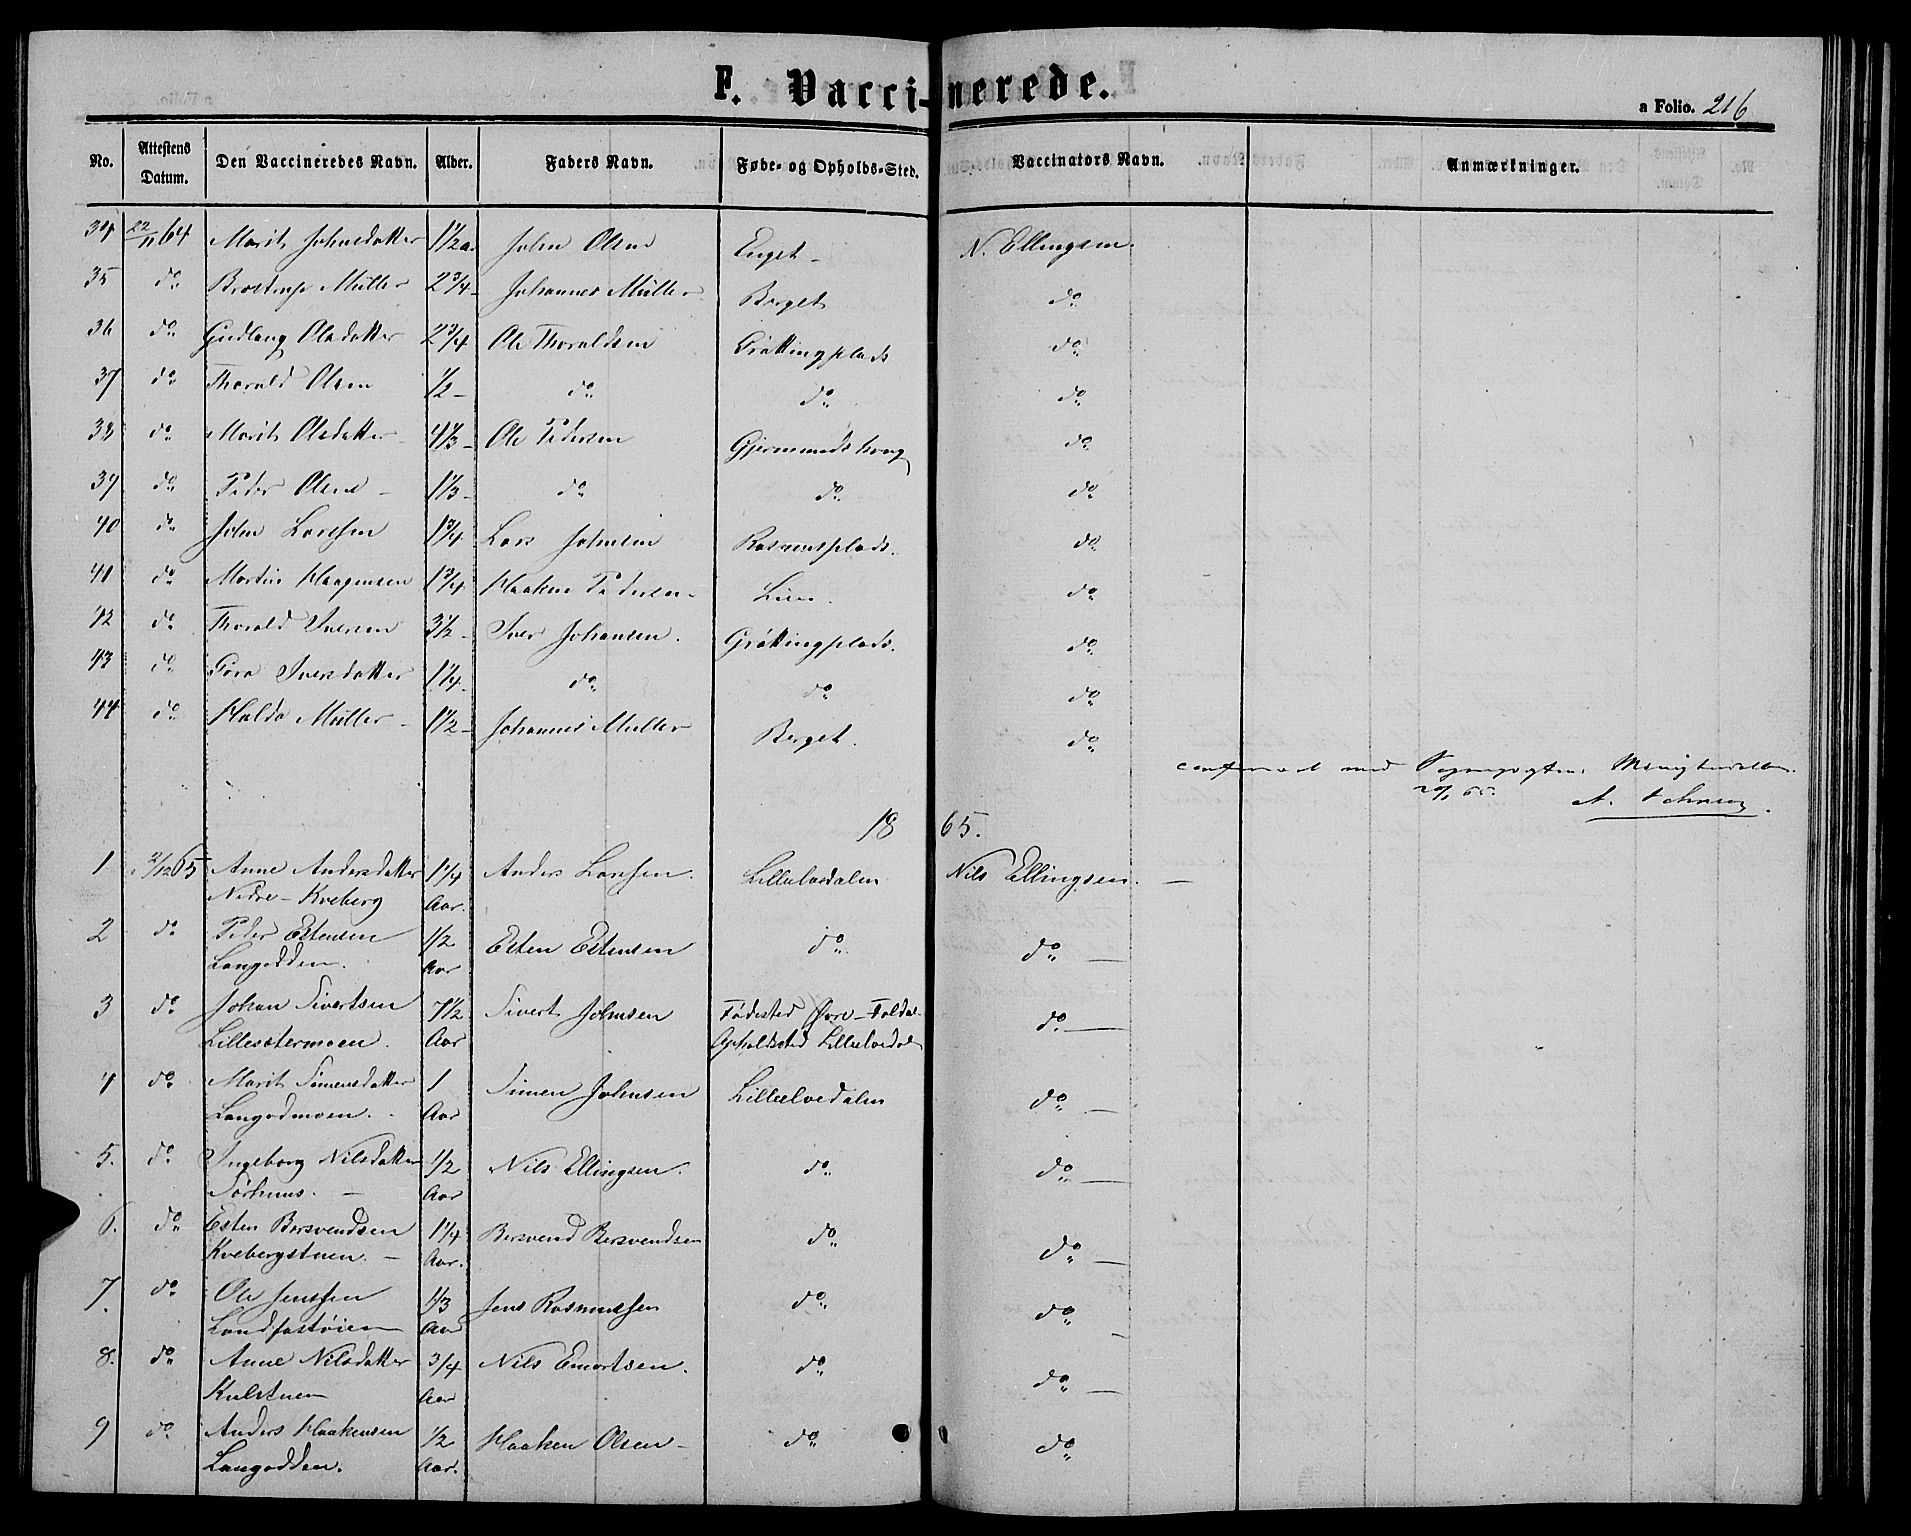 F. Vaccinerede.
a Folio. 216
No. Attestens Datum. Den Vaccineredes Navn. Alder. Faders Navn. Føde- og Opholds-Sted. Vaccinators Navn. Anmærkninger.
34 22/11 64 Marit Johnsdatter 1 1/2 a. John Olsen Enget - N. Ellingsen.
35 do Brostrup Müller 2 3/4 - Johannes Müller Berget do
36 do Gudlaug Olsdatter 2 3/4 Ole Thoraldsen Gråttingplads do
37 do Thorald Olsen 1/2 - do do do
38 do Marit Olsdatter 4 1/3 - Ole Pedersen Gjermundshoug do
39 do Peder Olsen - 1 1/3 - do do do
40 do John Larssen 1 3/4 Lars Johnsen Rasmusplads. do
41 do Martin Haagensen 1 3/4 Haaken Pedersen - Lien. do
42 do Thorald Iversen 3 1/2 - Iver Johansen. Gråttingplads. do
43 do Tora Iversdatter 1 1/4 - do do do
44 do Halda Müller - 1 1/2 - Johannes Müller Berget. do
confereret med
20/1 65.
1865.
1 3/12 65 Anne Andersdatter 1 1/4 Anders Larsen. Lilleelvedalen Nils Ellingsen. -
Nedre-Kveberg Aar.
2 do Peder Estensen 1/2 Esten Estensen do do -
Langodden. Aar
3 do Johan Sivertsen 7 1/2 Sivert Johnsen Fødested Øvre-Foldal do -
Lillesætermoen. Aar Opholdsted Lilleelvedal
4 do Marit Simensdatter 1 Simen Johnsen Lilleelvedalen do -
Langodmoen. Aar
5. do Ingeborg Nilsdatter 1/2 Nils Ellingsen. do do -
Sørhuus. - Aar
6. do Esten Bersvendsen 1 1/4 Bersvend Bersvendsen do do -
Kvebergstuen. - Aar.
7. do Ole Jenssen 1/3 Jens Rasmussen do do -
Landfastøien Aar
8. do Anne Nilsdatter 3/4 Nils Emortsen. do do -
Kulstuen Aar
9 do Anders Haakensen 1/2 Haaken Olsen - do do
Langodden. Aar.